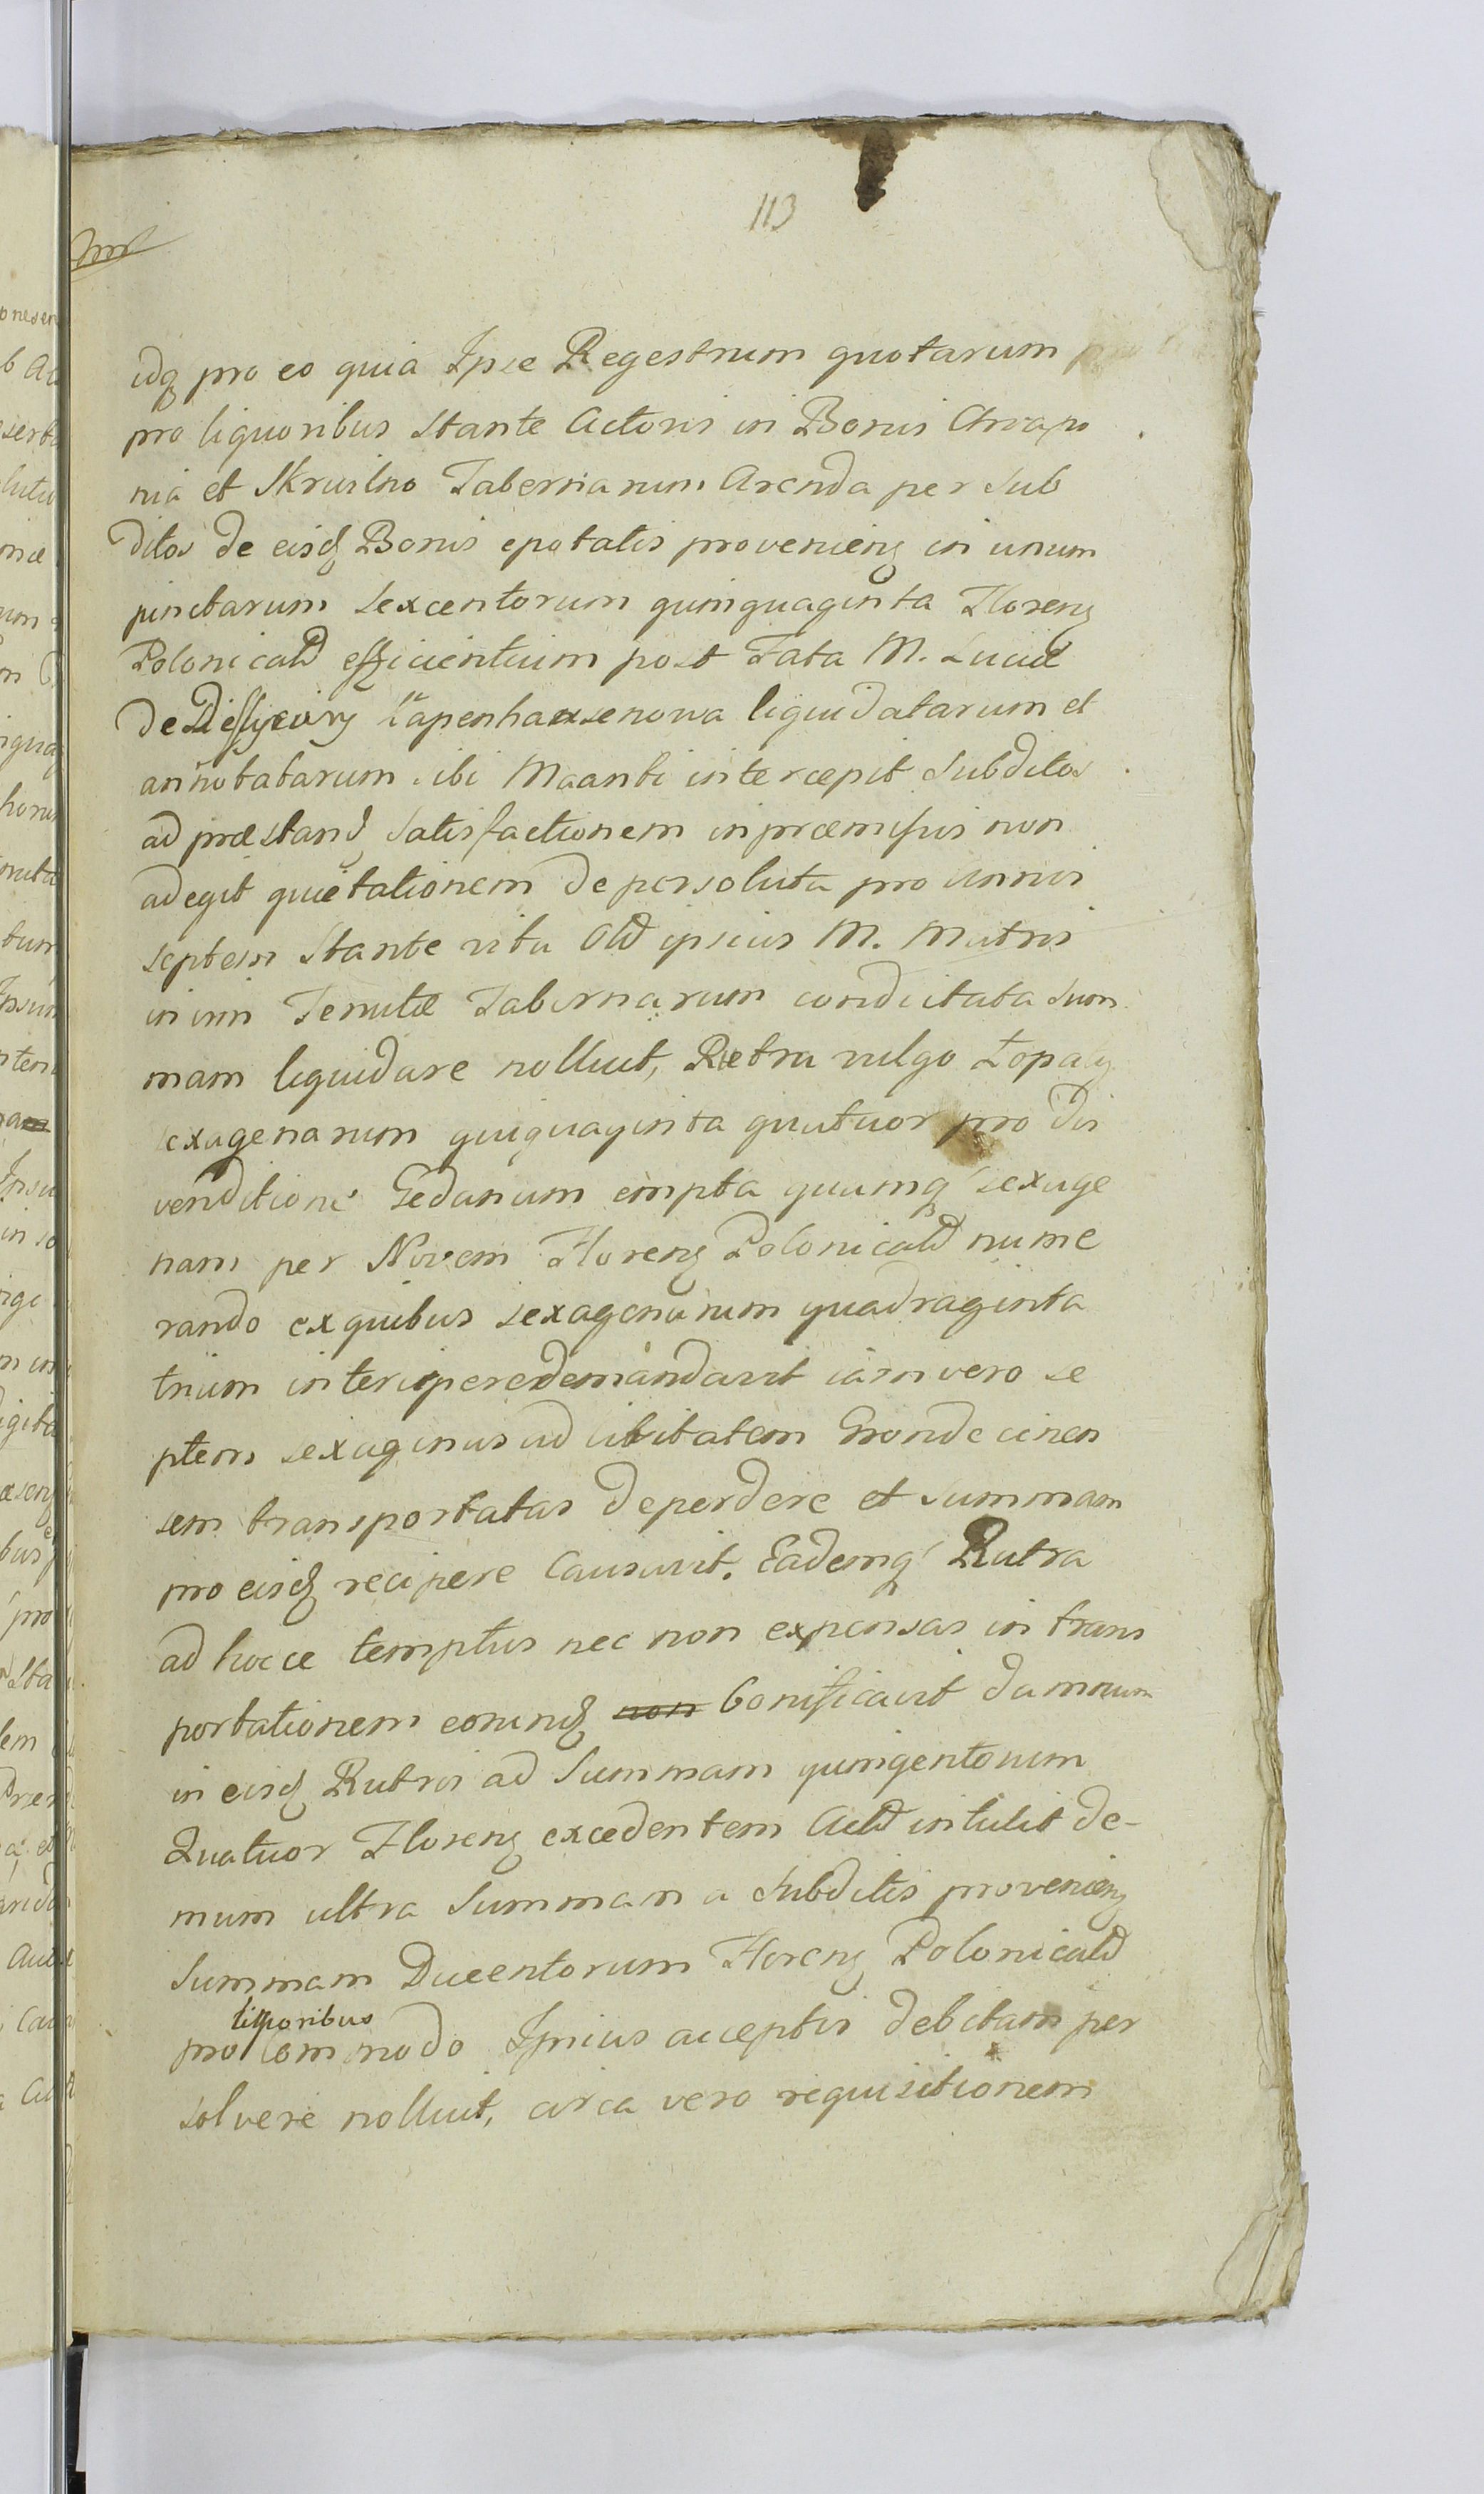 113
idq pro eo quia Ipse Regestrum quotarum
pro liquoribus Stante Actoris in Bonis Chrapo
nia et Skrwilno Tabernarum Arenda per Sub
ditos de eisd Bonis epotatis provenieng in unum
junctarum sexcentorum quinquaginta Floreng
Polonicald efficientium post Fata M. Luciæ
de Lapenhausenowa liquidatarum et
annotatarum sibi Maanti intercepit subditos
ad præstand satisfactionem in præmissis non
adegit quietationem de persoluta pro annis
septem Stante vita Old ipsius M. Matris
in vim Tenutæ Tabernarum condictata sum
mam liquidare nolluit, Rutra vulgo Łopaty
sexagenarum quiquaginta quatuor pro di
venditione Gedanum empta quamq sexage
nam per Novem Floreng Polonicald nume
rando ex quibus sexagenarum quadraginta
trium intercipere demandavit iam vero se
ptem sexagenas ad civitatem Grondecinen
sem transportatas deperdere et summam
pro eisd recipere Causavit. Eademq Rutra
ad hocce temptus nec non expensas in trans
portationem eorund non bonificavit damnum
in eisd Rutris ad Summam quingentorum
Quatuor Floreng excedentem Actd intulit de-
mum ultra Summam a Subditis provenieng
Summam Ducentorum Floreng Polonicald
liquoribus
pro Commodo Ipsius acceptis debitam per
solvere nolluit, circa vero requisitionem